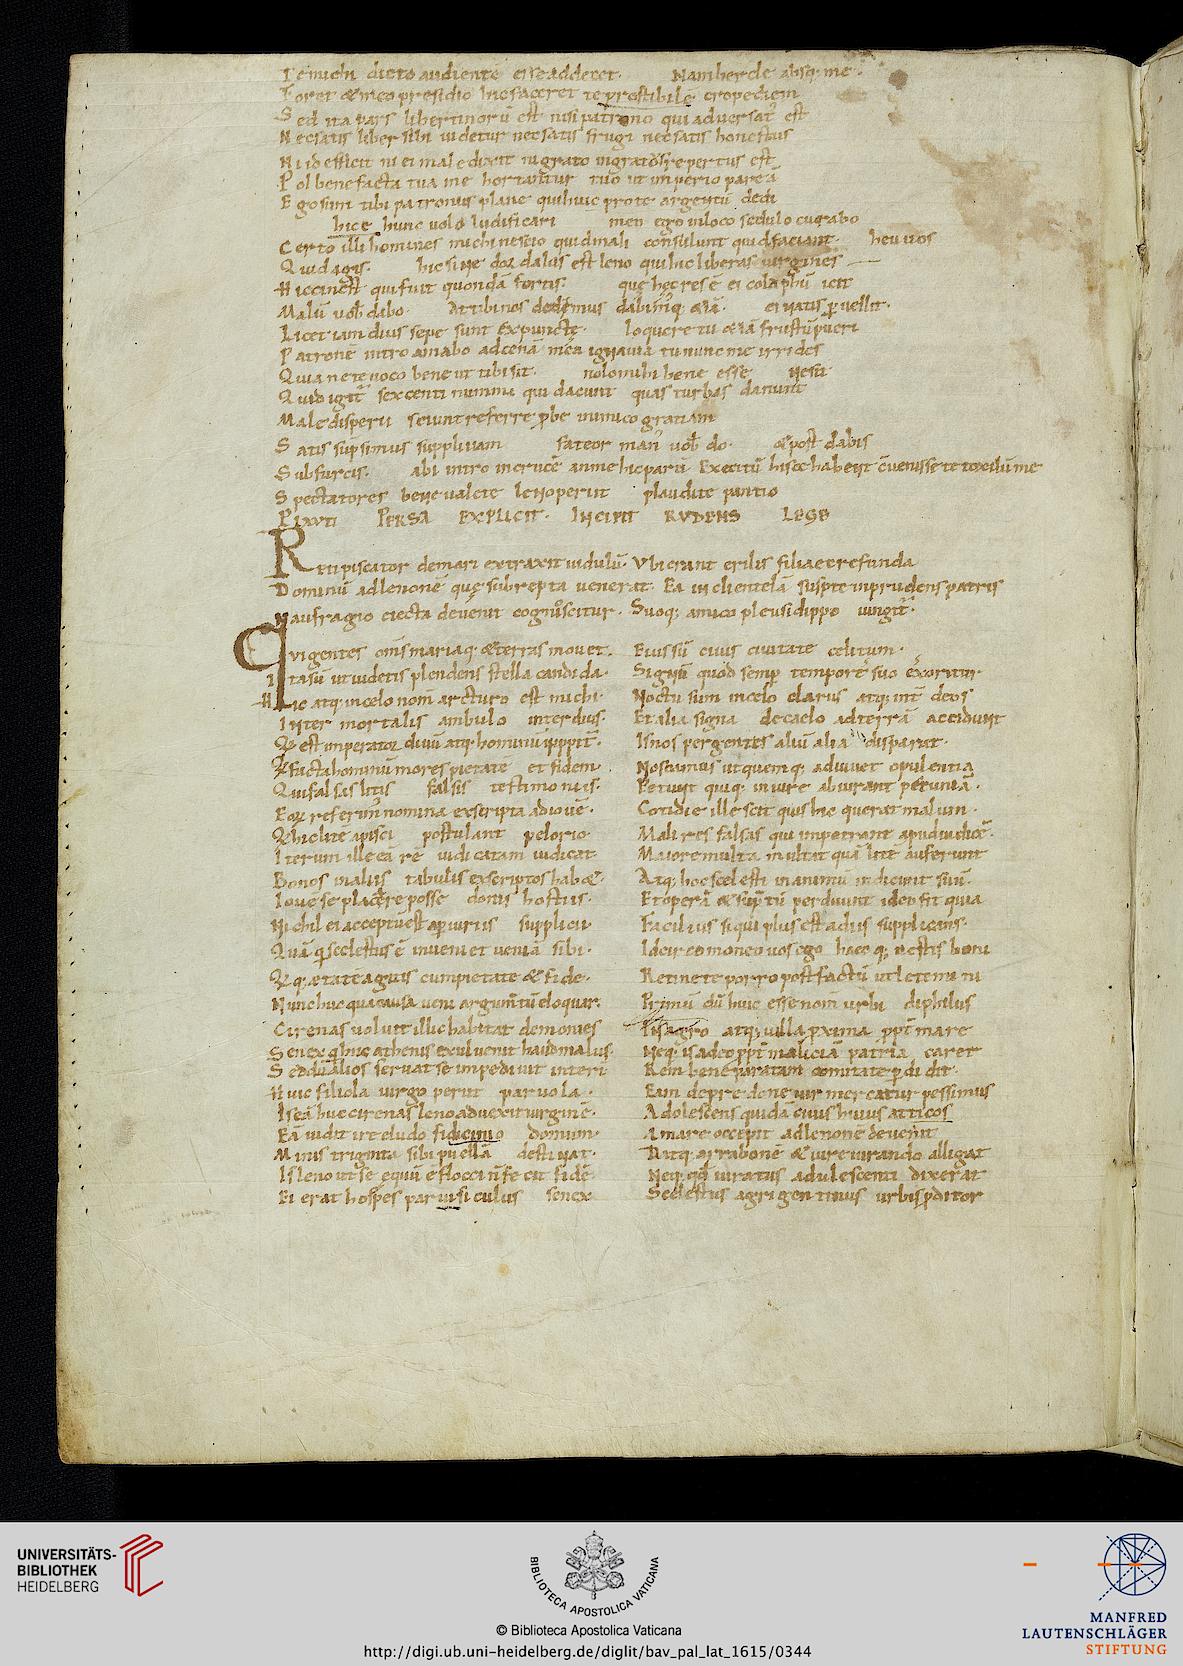 Te michi dicto audientē esse addecet. Nam hercle absq; me.
Foret & meo presidio hic faceret te prostibilē cropediem
Sed ita pars libertinorū est nisi patrono qui aduersat̄ est
Nec satis liber sibi uidetur nec satis frugi nec satis honestus
Ni id efficit ni ei male dixit ni grato ingratus repertus est
Pol benefacta tua me hortantur tuo ut imperio paream
Ego sum tibi patronus plane qui huic pro te argentū dedi
hunc uolo ludificari meo ego inloco sedulo curabo
Certo illi homines michi nescio quid mali consulunt quid faciant. heu uos
Quid agis. hic sine dordalus est leno qui hic liberas uirgines
Hiccinest qui fuit quondā fortis. quę hec res ē ei colaphū icit
Malū uob̄ dabo. At tibi nos dedimus dabimq; &iā. ei natis p̱uellit.
Licet iam diu sepe sunt expuncte. loquere tu &iā frustū pueri
Patronē intro amabo ad cenā mea ignauia tu nunc me irrides
Quia ne te uoco bene ut tibi sit. nolo mihi bene esse ne sit
Quid igit̄ sexcenti nummi qui dacunt quas turbas danunt
Male disperii sciunt referre p̱be inimico gratiam
Satis supsimus supplicii fateor man' uob̄ do. & post dabis
Sub furcis. abi intro in crucē an me hic parū Exercitū hisce habent c̄uenisse te toxilū me
Spectatores bene ualete leno periit plaudite pantio
PLAVTI PERSA EXPLICIT. INCIPIT RVDENS LEGE
Reti piscator de mari extraxit uidulū. Vbi erant erilis filiae trefunda
Dominū ad lenonē quę subrepta uenerat. Ea in clientelā suspte inprudens patris
Naufragio eiecta deuenit cognoscitur. Suoq; amico pleusidippo iungit̄.
Qui gentes om̄s mariaq; & terras mouet. Eius sū ciuis ciuitate celitum.
Ita sū ut uidetis plendens stella candida. Signū quod semp̱ tempore suo exoritur
Hic atq; in celo nom̄ arcturo est michi. Noctu sum in celo clarus atq; int̄ deos
Inter mortalis ambulo interdius. Et alia signa de caelo ad terrā accidunt
Q est imperator diuū atq; hominū iuppit̄. Is nos per gentes aliū alia disparat.
Q facta hominū mores pietate et fidem. Noscamus ut quemq; adiuuet opulentia
Qui falsas litis falsis testimoniis. Petunt quiq; in iure abiurant pecuniā.
Eorū referim' nomina exscripta ad iouē. Cotidie ille scit quis hic querat malum.
Q hic lite apisci postulant peiorio Mali res falsas qui impetrant apud iudicē.
Iterum ille eā rē iudicatam iudicat Maiore multa multat quā litē auferunt
Bonos in aliis tabulis exscriptos hab&. Atq; hoc scelesti in animū inducunt suū.
Ioue se placere posse donis hostiis. Et operā & sup̄tū perdunt ideo fit quia
Nichil ei acceptū est ap̱iuriis supplicii Facilius siqui pius est a diis supplicans.
Quā q̱ scelestus ē inueniet ueniā sibi. Idcirco moneo uos ego haec q; estis boni
Qq; ætatē agitis cum pietate & fide. Retinete porro post factū ut letemini
Nunc huc qua causa ueni argum̄tū eloquar. Primū dū huic esse nom̄ urbi diphilus
Cirenas uoluit illic habitat demonies Iis agro atq; uilla p̱xima pp̄t mare
Senex q̱ huc athenis exul uenit haud malus. Neq; is adeo pp̄t maliciā patria caret
Sed dū alios seruat se impediuit interi Rem bene paratam comitate p̱didit.
Huic filiola uirgo periit paruola. Eam de predone uir mercatur pessimus
Is eā huc cirenas leno aduexit uirginē. Adolescens quidā ciuis huius atticos
Eā uidit ire e ludo fidicinio domum. Amare occepit ad lenonē deuenit
Minis triginta sibi puellā destinat. Datq; arrabone & iureiurando alligat
Is leno ut se equū ē flocci n̄ fecit fidē. Neq; qd̄ iuratus adulescenti dixerat
Ei erat hospes par uisi culus senex Scelestus agrigentinus urbis p̱ditor
UNIVERSITÄTS-
BIBLIOTHEK
HEIDELBERG
BIBLIOTECA APOSTOLICA VATICANA
© Biblioteca Apostolica Vaticana
http://digi.ub.uni-heidelberg.de/diglit/bav_pal_lat_1615/0344
MANFRED
LAUTENSCHLÄGER
STIFTUNG